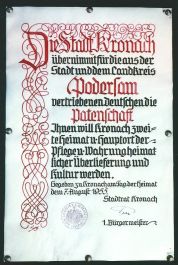 Die Stadt Kronach
übernimmt für die aus der
Stadt und dem Landkreis
Podersam
vertriebenen deutschen die
Patenschaft
Ihnen will Kronach zwei-
te Heimat u. Hauptort der
Pflege u. Wahrung heimat
licher Überlieferung und
Kultur werden.
Gegeben zu Kronach am Tag der Heimat
dem 7. August 1955.
Stadtrat Kronach
1. Bürgermeister